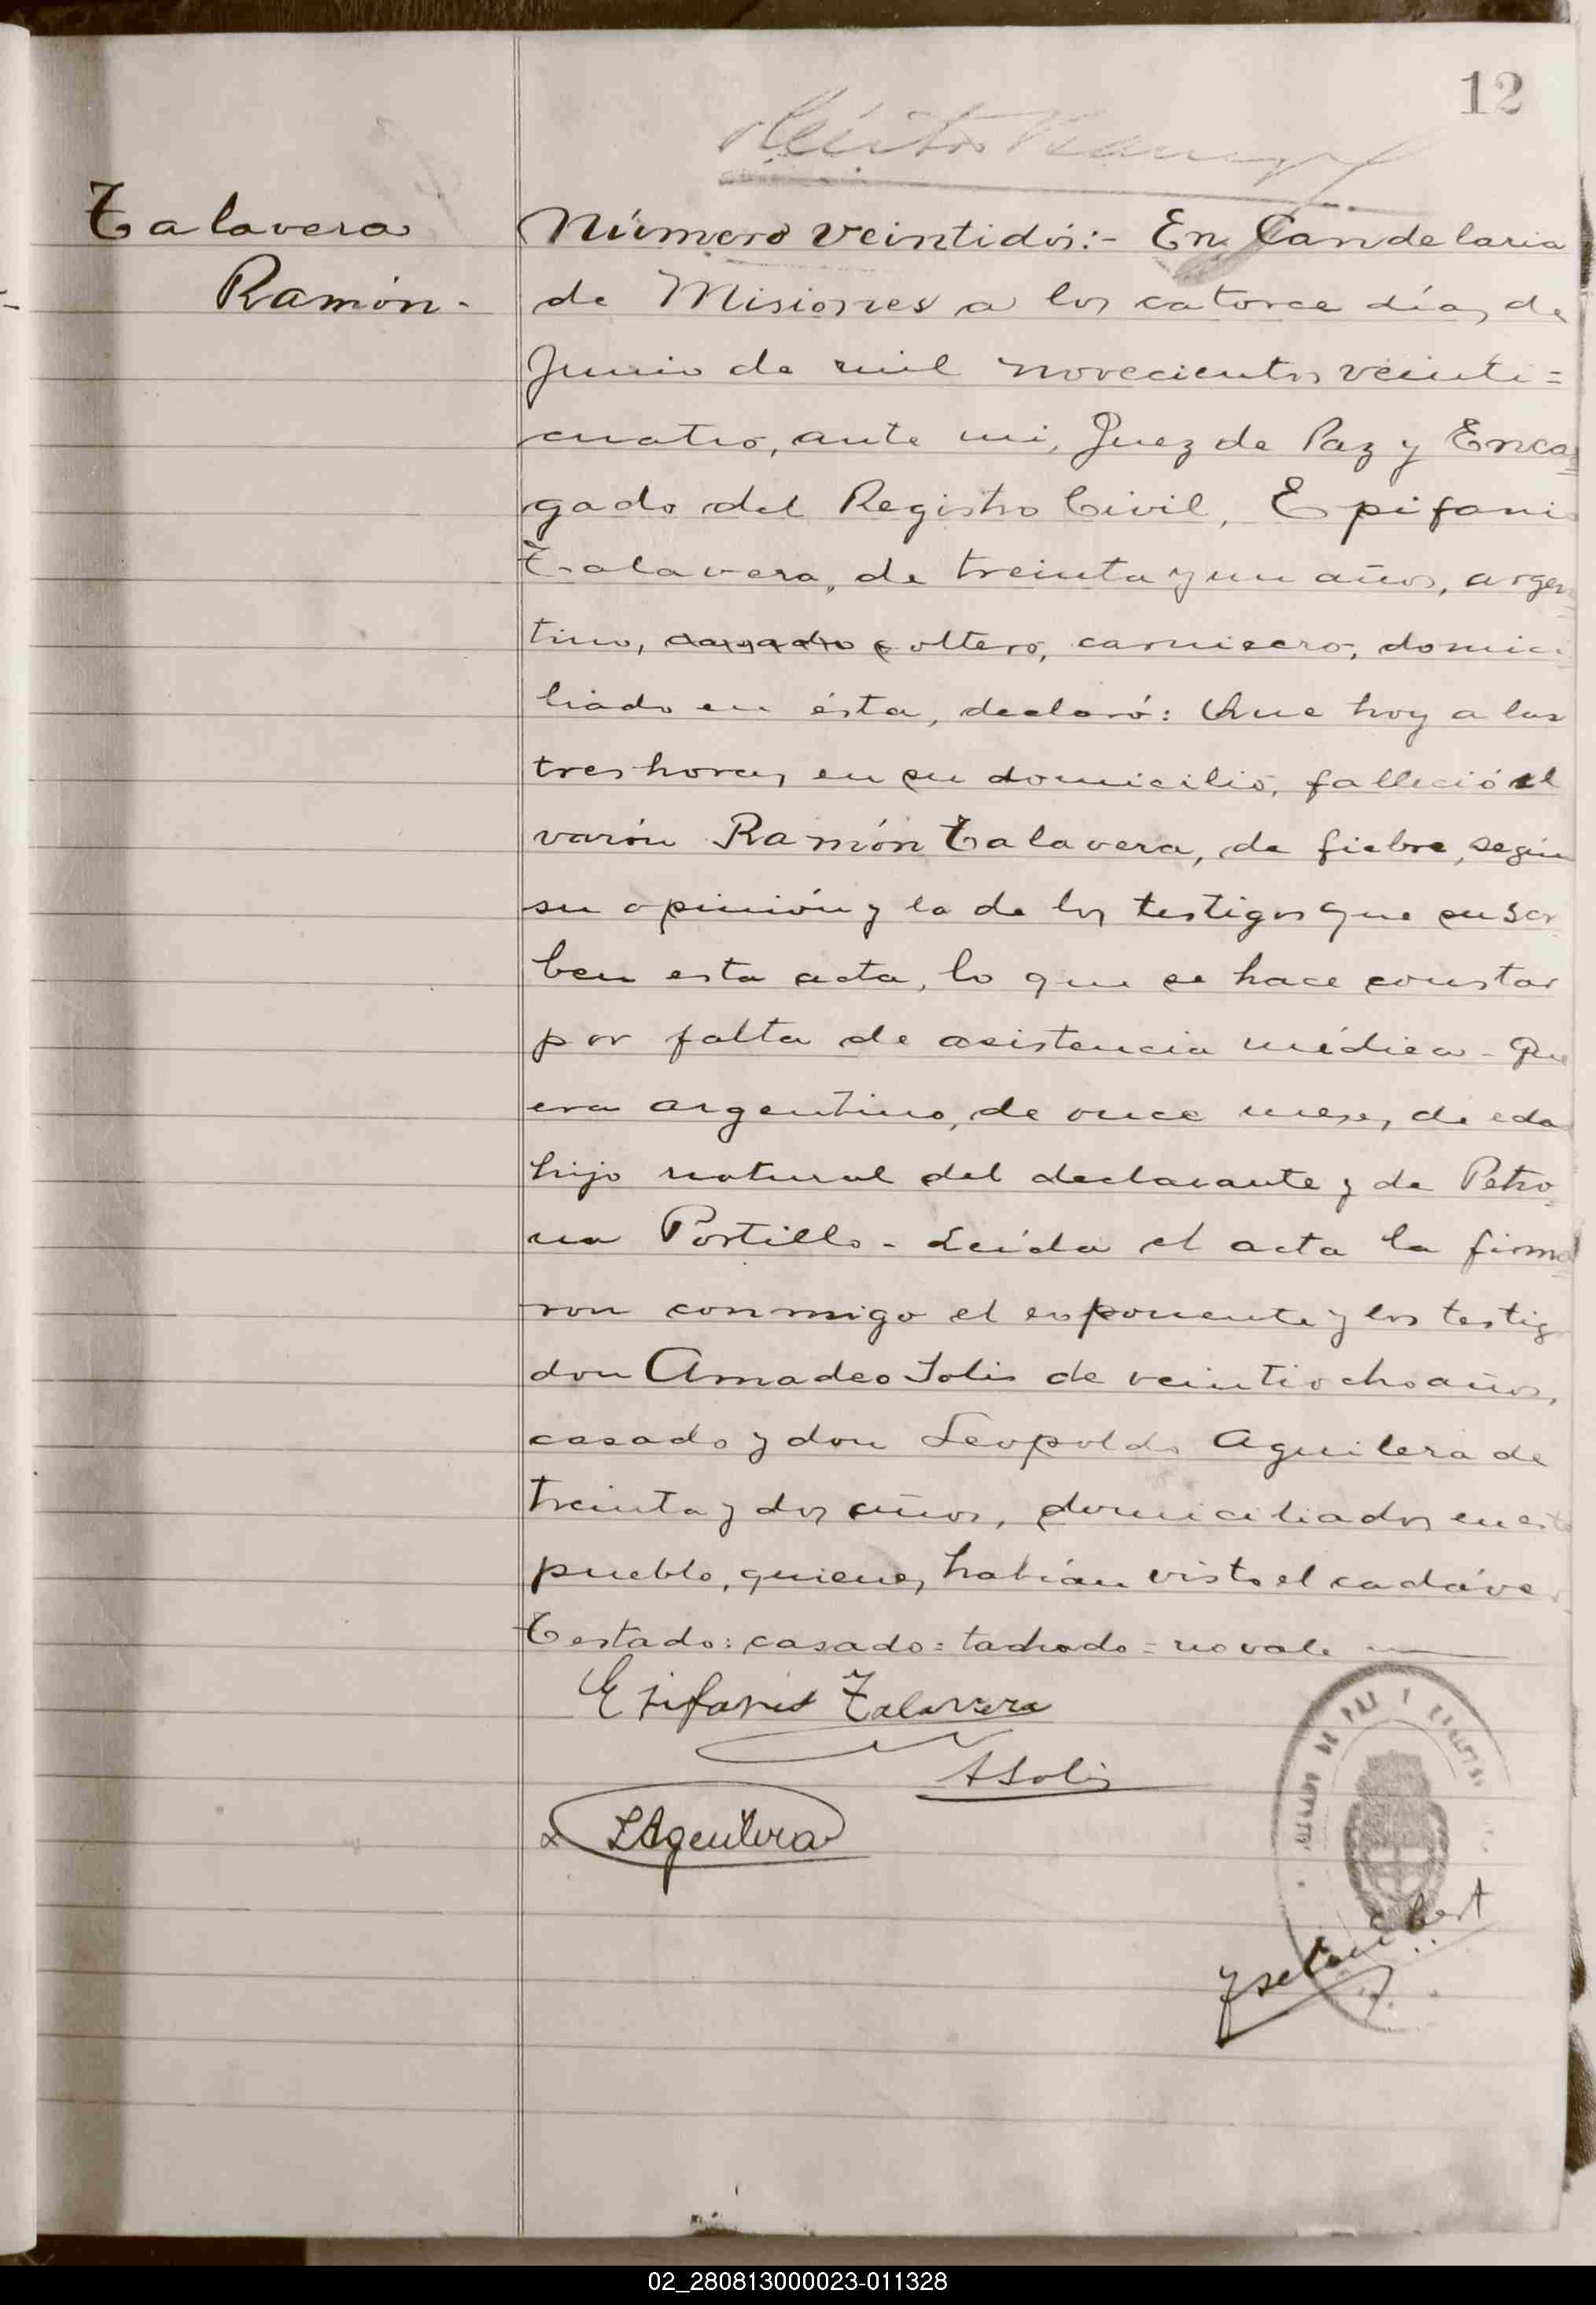 12
Talavera
Ramón.
Número veintidós:- En Candelaria
de Misiones a los catorce días de
Junio de mil novecientos veinti=
cuatro, ante mi, Juez de Paz y Enca
gado del Registro Civil, Epifanio
Talavera, de treinta y un años, argen
tino, casado soltero, carnicero, domici
liado en ésta, declaró: Que hoy a las
tres horas, en su domicilio, falleció el
varón Ramón Talavera, de fiebre, según
su opinión y la de los testigos que suscr
ben esta acta, lo que se hace constar
por falta de asistencia médica - Que
era argentino, de once meses de eda
hijo natural del declarante y de Petro
na Portillo - Leída el acta la firma
ron conmigo el exponente y los testig
don Amadeo Solis de veintiocho años,
casado y don Leopoldo Aguilera de
treinta y dos años, domiciliados en este
pueblo, quienes habían visto el cadáver
Testado: casado = tachado = no vale
Epifanio Talavera
ASolis
LAguilera
DE PAZ Y
02_280813000023-011328